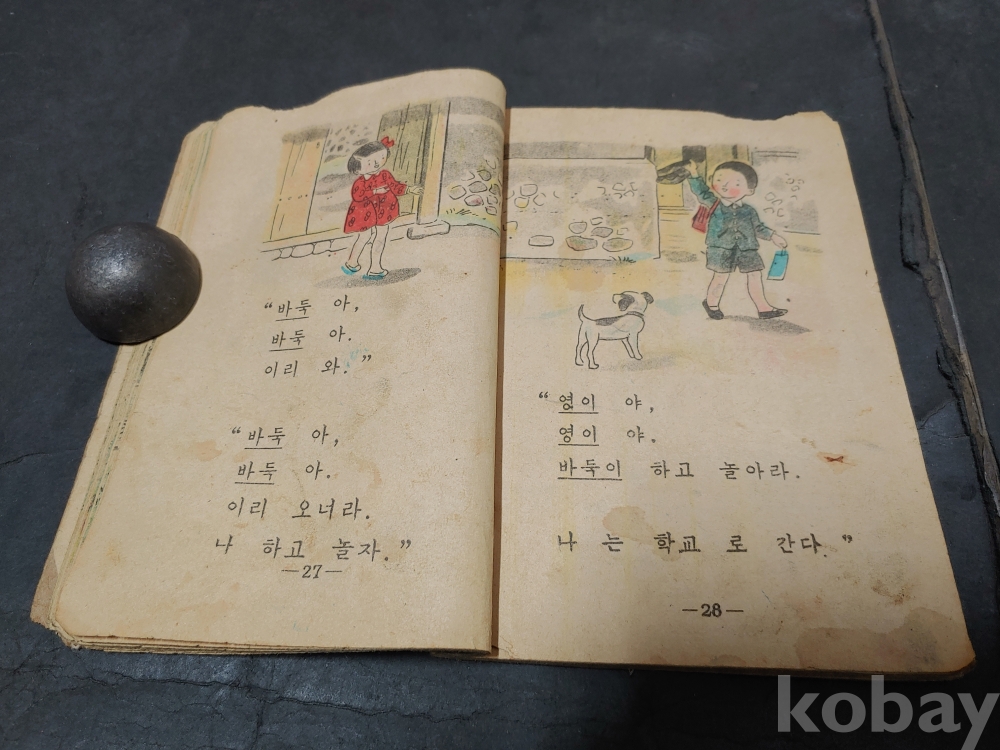 “바둑 아,
바둑 아.
이리 와.”
“바둑 아,
바둑 아.
이리 오너라.
나 하고 놀자.”
—27—
“영이 야,
영이 야.
바둑이 하고 놀아라.
나 는 학교 로 간다.”
—28—
kobay